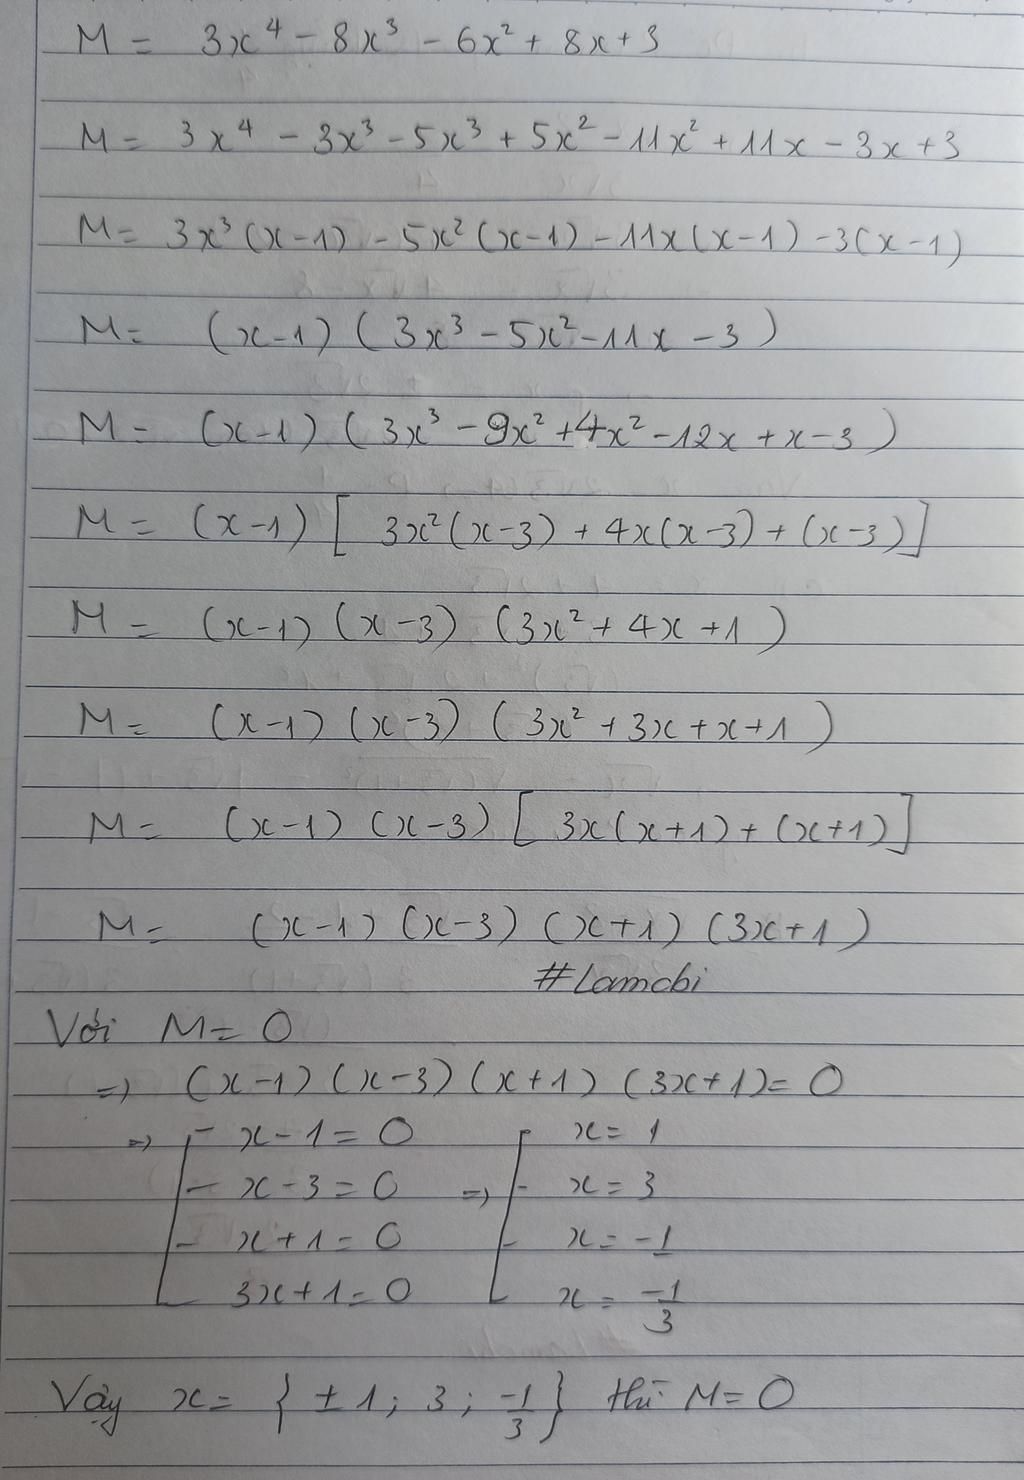 M = 3x⁴ - 8x³ - 6x² + 8x + 3
M = 3x⁴ - 3x³ - 5x³ + 5x² - 11x² + 11x - 3x + 3
M = 3x³(x-1) - 5x²(x-1) - 11x(x-1) - 3(x-1)
M = (x-1)(3x³ - 5x² - 11x - 3)
M = (x-1)(3x³ - 9x² + 4x² - 12x + x - 3)
M = (x-1)[3x²(x-3) + 4x(x-3) + (x-3)]
M = (x-1)(x-3)(3x² + 4x + 1)
M = (x-1)(x-3)(3x² + 3x + x + 1)
M = (x-1)(x-3)[3x(x+1) + (x+1)]
M = (x-1)(x-3)(x+1)(3x+1)
#Lamchi
Với M = 0
=> (x-1)(x-3)(x+1)(3x+1) = 0
=> [ x-1 = 0 x = 1
x-3 = 0 => [ x = 3
x+1 = 0 x = -1
3x+1 = 0 x = -1/3
Vậy x = {±1; 3; -1/3} thì M = 0